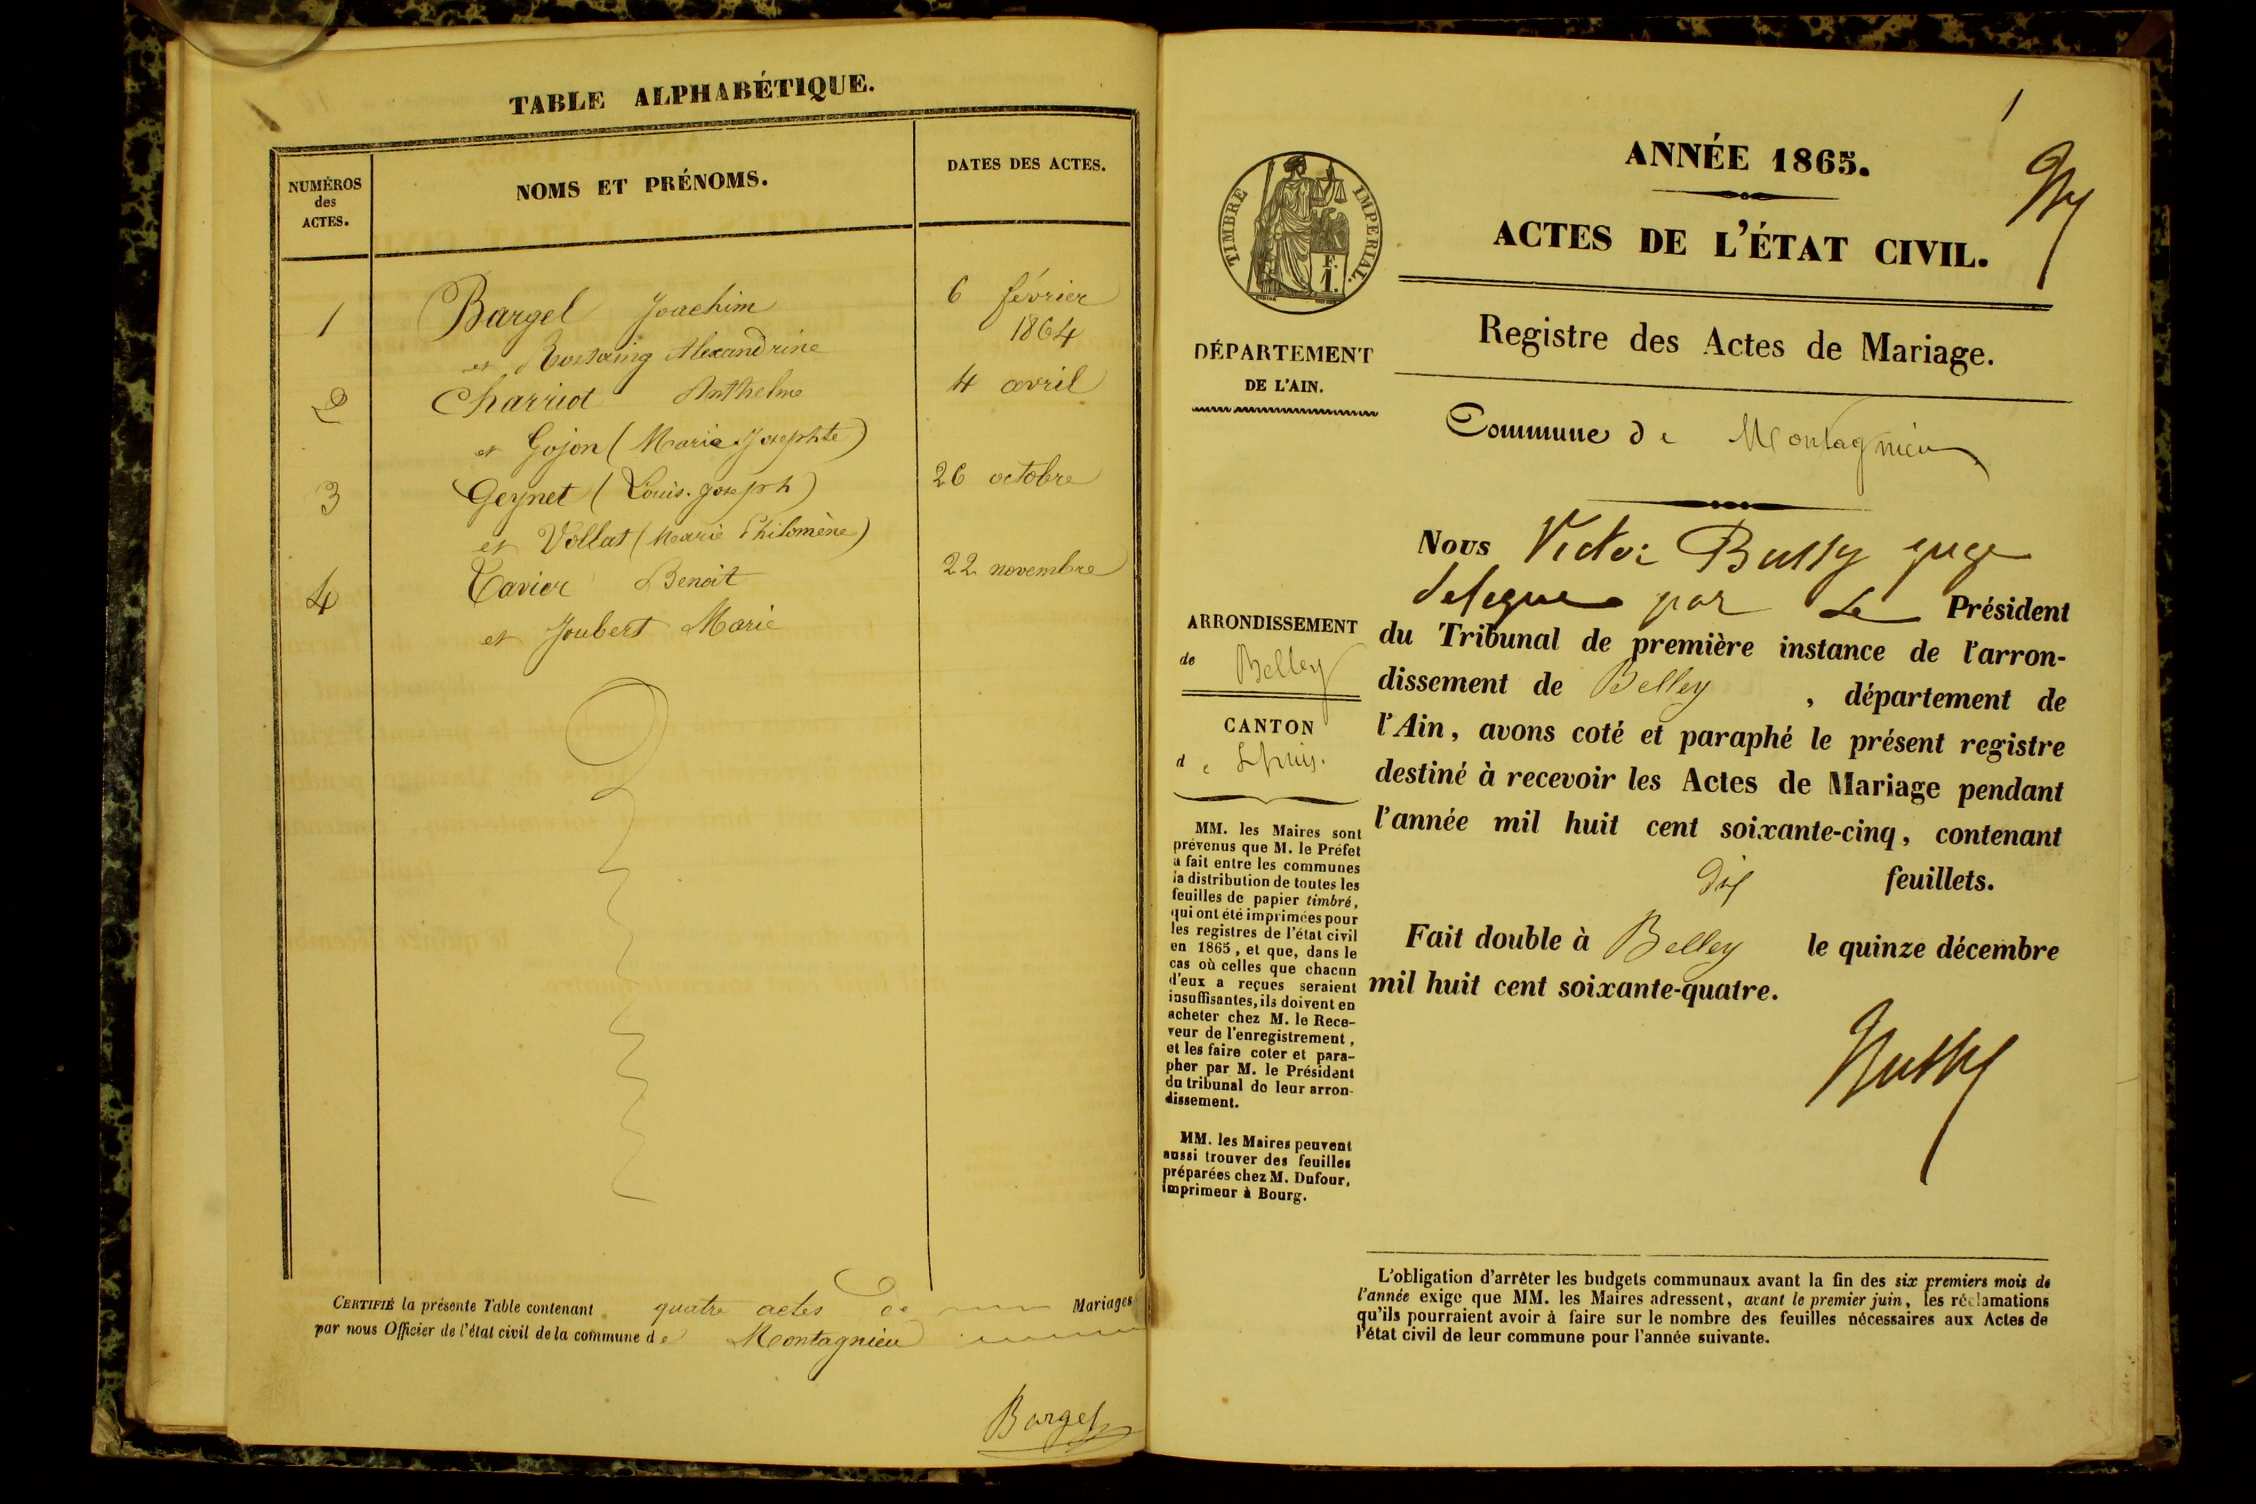 TABLE ALPHABÉTIQUE.
NUMÉROS
des
ACTES.
NOMS ET PRÉNOMS.
DATES DES ACTES.
1 Bargel Joachim 6 février
1864
et Rostaing Alexandrine
2 Charriot Anthelme 4 avril
et Gojon (Marie Josephte)
3 Geynet (Louis-Joseph) 26 octobre
et Vollat (Marie Philomène)
4 Tavier Benoit 22 novembre
et Joubert Marie
CERTIFIÉ la présente Table contenant quatre actes de Mariages
par nous Officier de l'état civil de la commune de Montagnieu
Bargel
1
ANNÉE 1865.
ACTES DE L'ÉTAT CIVIL.
Registre des Actes de Mariage.
TIMBRE IMPERIAL.
F.
1.
DÉPARTEMENT
DE L'AIN.
Commune de Montagnieu
Nous Victor Bussy juge
delegue par Le Président
du Tribunal de première instance de l'arron-
dissement de Belley, département de
l'Ain, avons coté et paraphé le présent registre
destiné à recevoir les Actes de Mariage pendant
l'année mil huit cent soixante-cinq, contenant
dix feuillets.
Fait double à Belley le quinze décembre
mil huit cent soixante-quatre.
Bussy
ARRONDISSEMENT
de Belley
CANTON
de Lhuis.
MM. les Maires sont
prévenus que M. le Préfet
a fait entre les communes
la distribution de toutes les
feuilles de papier timbré,
qui ont été imprimées pour
les registres de l'état civil
en 1865, et que, dans le
cas où celles que chacun
d'eux a reçues seraient
insuffisantes, ils doivent en
acheter chez M. le Rece-
veur de l'enregistrement,
et les faire coter et para-
pher par M. le Président
du tribunal de leur arron-
dissement.
MM. les Maires peuvent
aussi trouver des feuilles
préparées chez M. Dufour,
imprimeur à Bourg.
L'obligation d'arrêter les budgets communaux avant la fin des six premiers mois de
l'année exige que MM. les Maires adressent, avant le premier juin, les réclamations
qu'ils pourraient avoir à faire sur le nombre des feuilles nécessaires aux Actes de
l'état civil de leur commune pour l'année suivante.